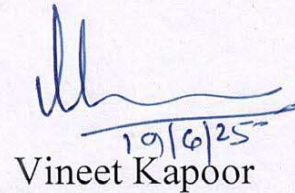 19/6/25
Vineet Kapoor